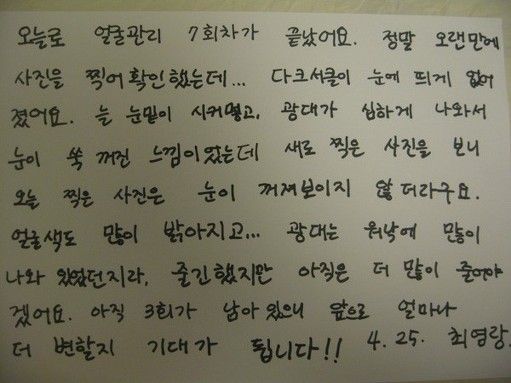 오늘로 얼굴관리 7회차가 끝났어요. 정말 오랜만에
사진을 찍어 확인했는데... 다크서클이 눈에 띄게 없어
졌어요. 늘 눈밑이 시커멓고, 광대가 심하게 나와서
눈이 쑥 꺼진 느낌이었는데 새로 찍은 사진을 보니
오늘 찍은 사진은 눈이 꺼져보이지 않더라구요.
얼굴색도 많이 밝아지고... 광대는 워낙에 많이
나와 있었던지라, 줄긴했지만 아직은 더 많이 줄어야
겠어요. 아직 3회가 남아있으니 앞으로 얼마나
더 변할지 기대가 됩니다!! 4.25. 최영랑.